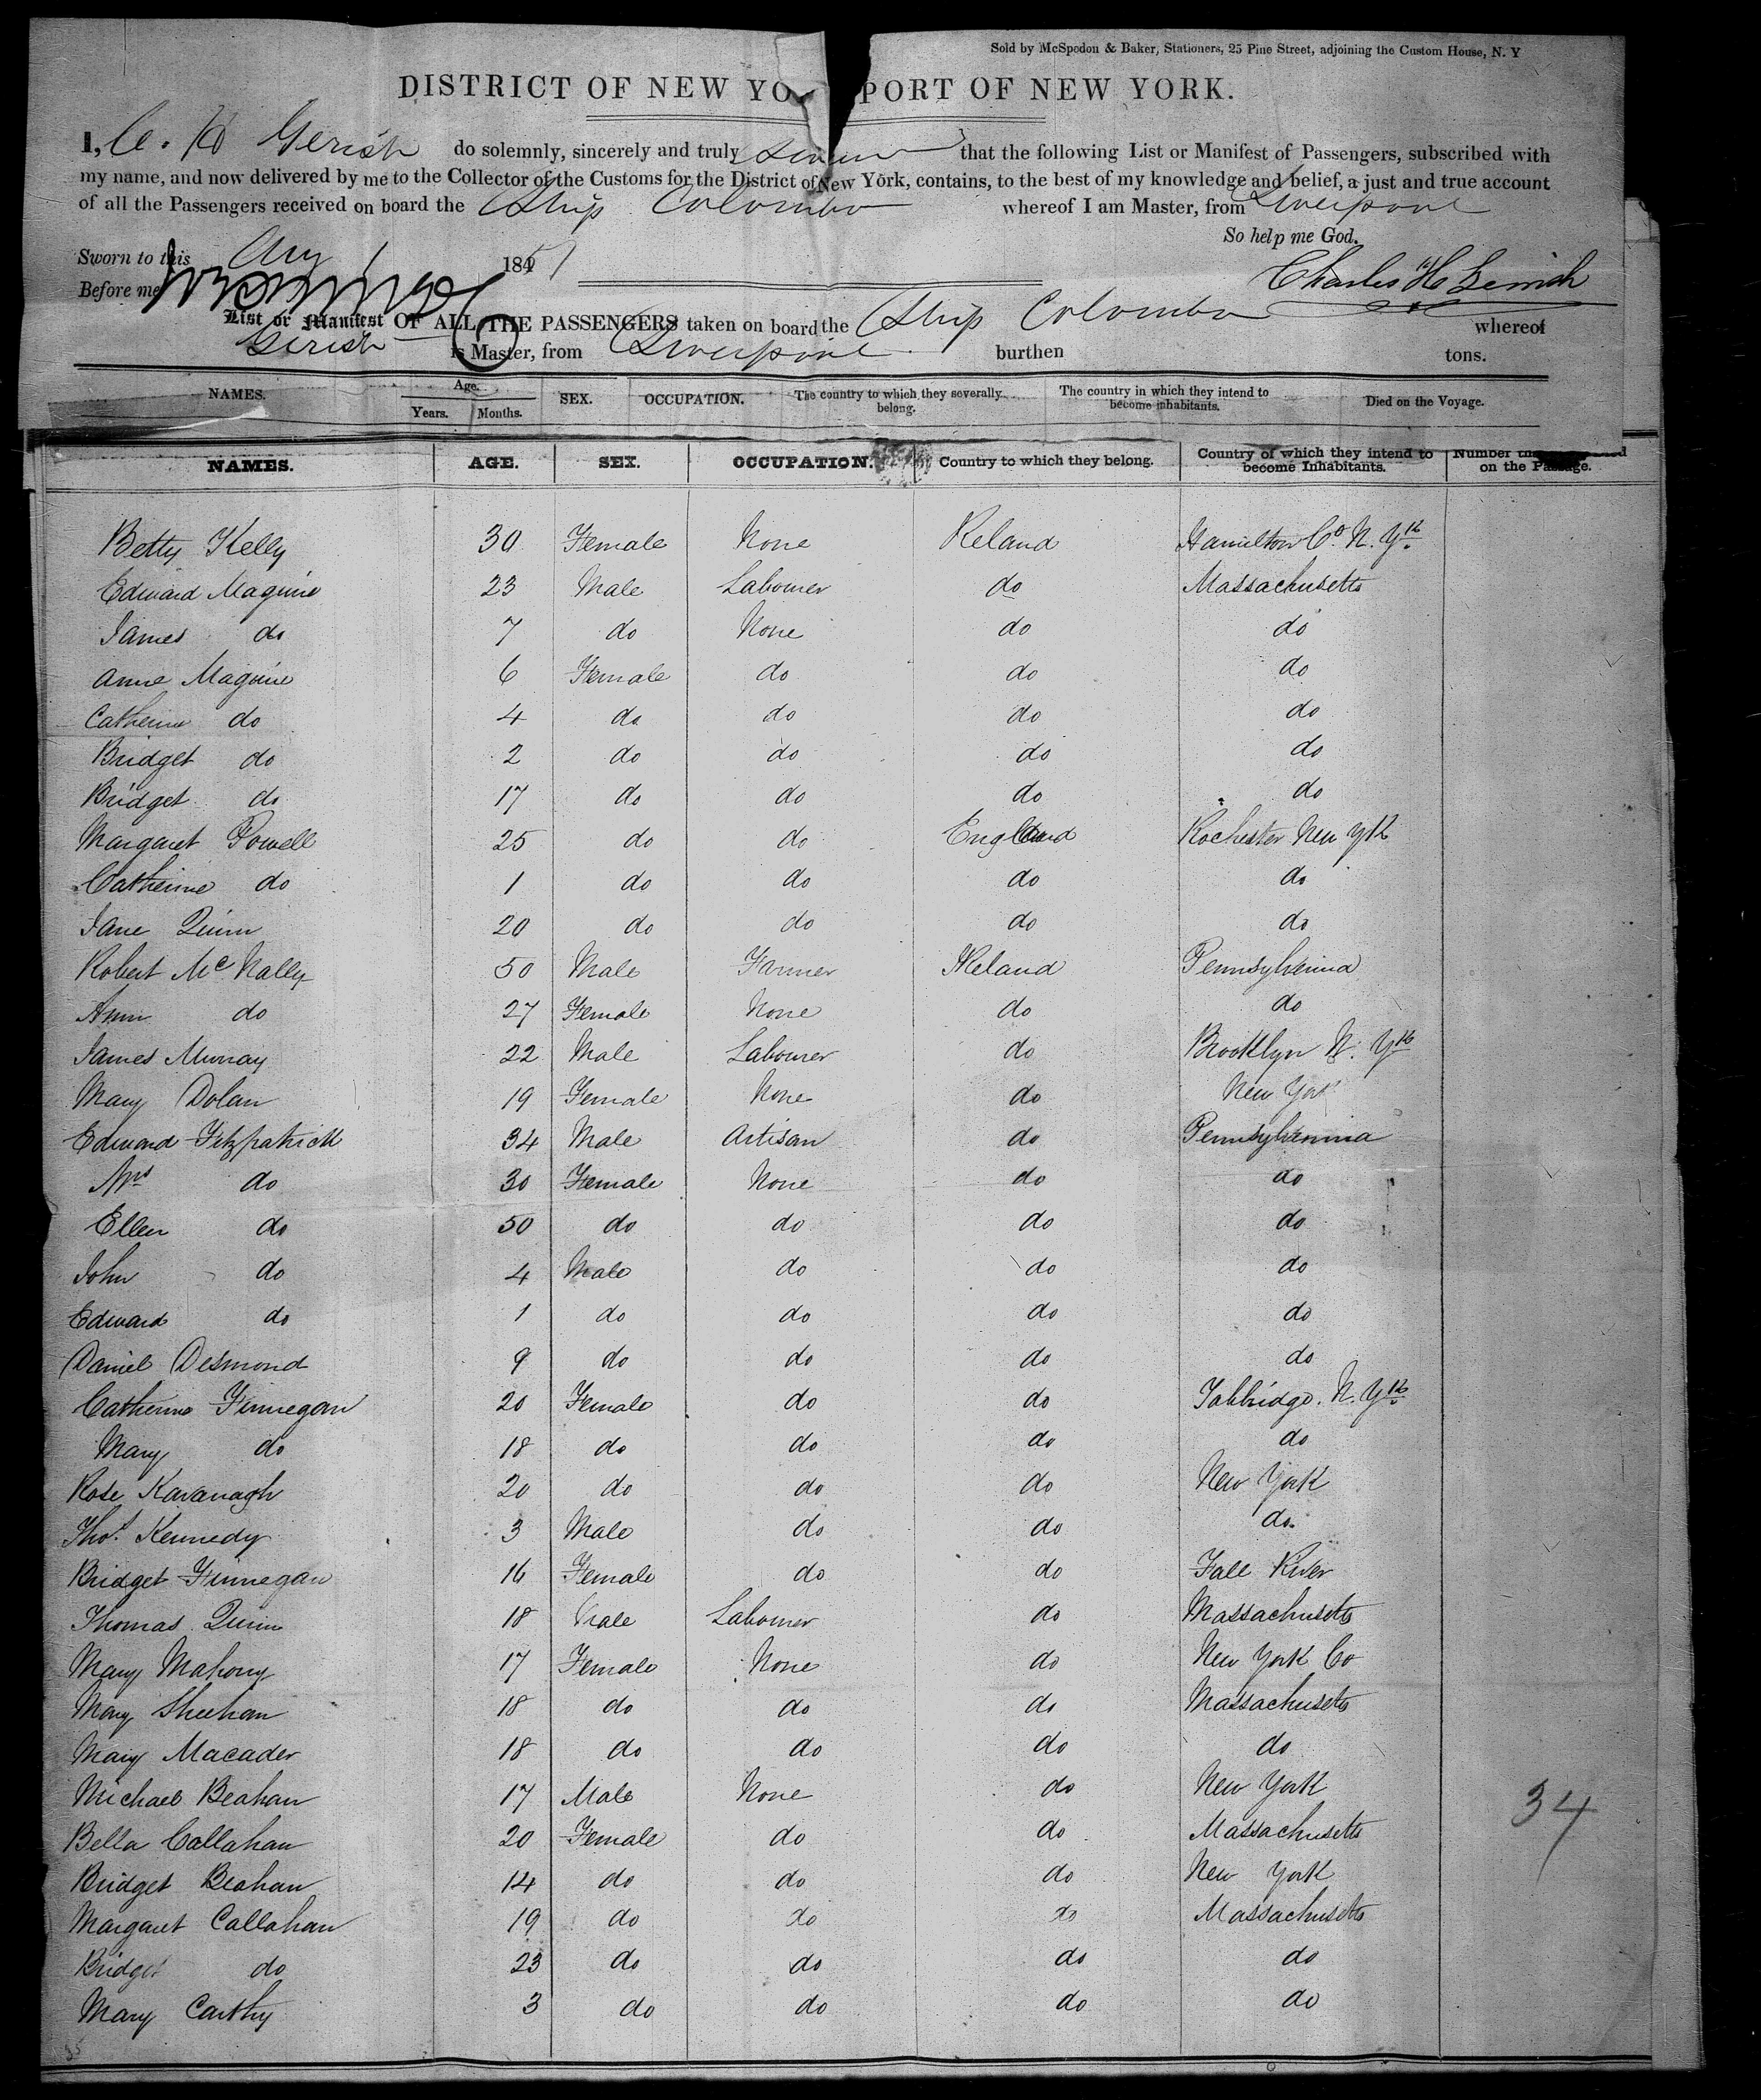 Sold by McSpedon & Baker, Stationers, 25 Pine Street, adjoining the Custom House, N. Y
DISTRICT OF NEW YO PORT OF NEW YORK.
I, C. H Gerish do solemnly, sincerely and truly swear that the following List or Manifest of Passengers, subscribed with
my name, and now delivered by me to the Collector of the Customs for the District of New York, contains, to the best of my knowledge and belief, a just and true account
of all the Passengers received on board the Ship Colombo whereof I am Master, from Liverpool
So help me God.
Sworn to this Aug 1 184
Charles H Gerrish
Before me
List or Manifest OF ALL THE PASSENGERS taken on board the Ship Colombo whereof
Gerish is Master, from Liverpool burthen tons.
NAMES. Age. Years. Months. SEX. OCCUPATION. The country to which they severally belong. The country in which they intend to become inhabitants. Died on the Voyage.
NAMES. AGE. SEX. OCCUPATION. Country to which they belong. Country of which they intend to become Inhabitants. Number on the Passage.
Betty Kelly 30 Female None Ireland Hamilton Co. N. Yk
Edward Maguire 23 Male Labourer do Massachusetts
James do 7 do None do do
Anne Maguire 6 Female do do do
Catherine do 4 do do do do
Bridget do 2 do do do do
Bridget do 17 do do do do
Margaret Powell 25 do do England Rochester New Yk
Catherine do 1 do do do do
Jane Quinn 20 do do do do
Robert McNally 50 Male Farmer Ireland Pennsylvania
Ann do 27 Female None do do
James Murray 22 Male Labourer do Brooklyn N. Yk
Mary Dolan 19 Female None do New York
Edward Fitzpatrick 34 Male Artisan do Pennsylvania
Mrs do 30 Female None do do
Ellen do 50 do do do do
John do 4 Male do do do
Edward do 1 do do do do
Daniel Desmond 9 do do do do
Catherine Finnegan 20 Female do do N. Yk
Mary do 18 do do do do
Rose Kavanagh 20 do do do New York
Thos. Kennedy 3 Male do do do
Bridget Finnegan 16 Female do do Fall River
Thomas Quinn 18 Male Labourer do Massachusetts
Mary Mahony 17 Female None do New York Co
Mary Sheehan 18 do do do Massachusetts
Mary Macader 18 do do do do
Michael Beahan 17 Male None do New York
Bella Callahan 20 Female do do Massachusetts
Bridget Beahan 14 do do do New York
Margaret Callahan 19 do do do Massachusetts
Bridget do 23 do do do do
Mary Carthy 3 do do do do
34